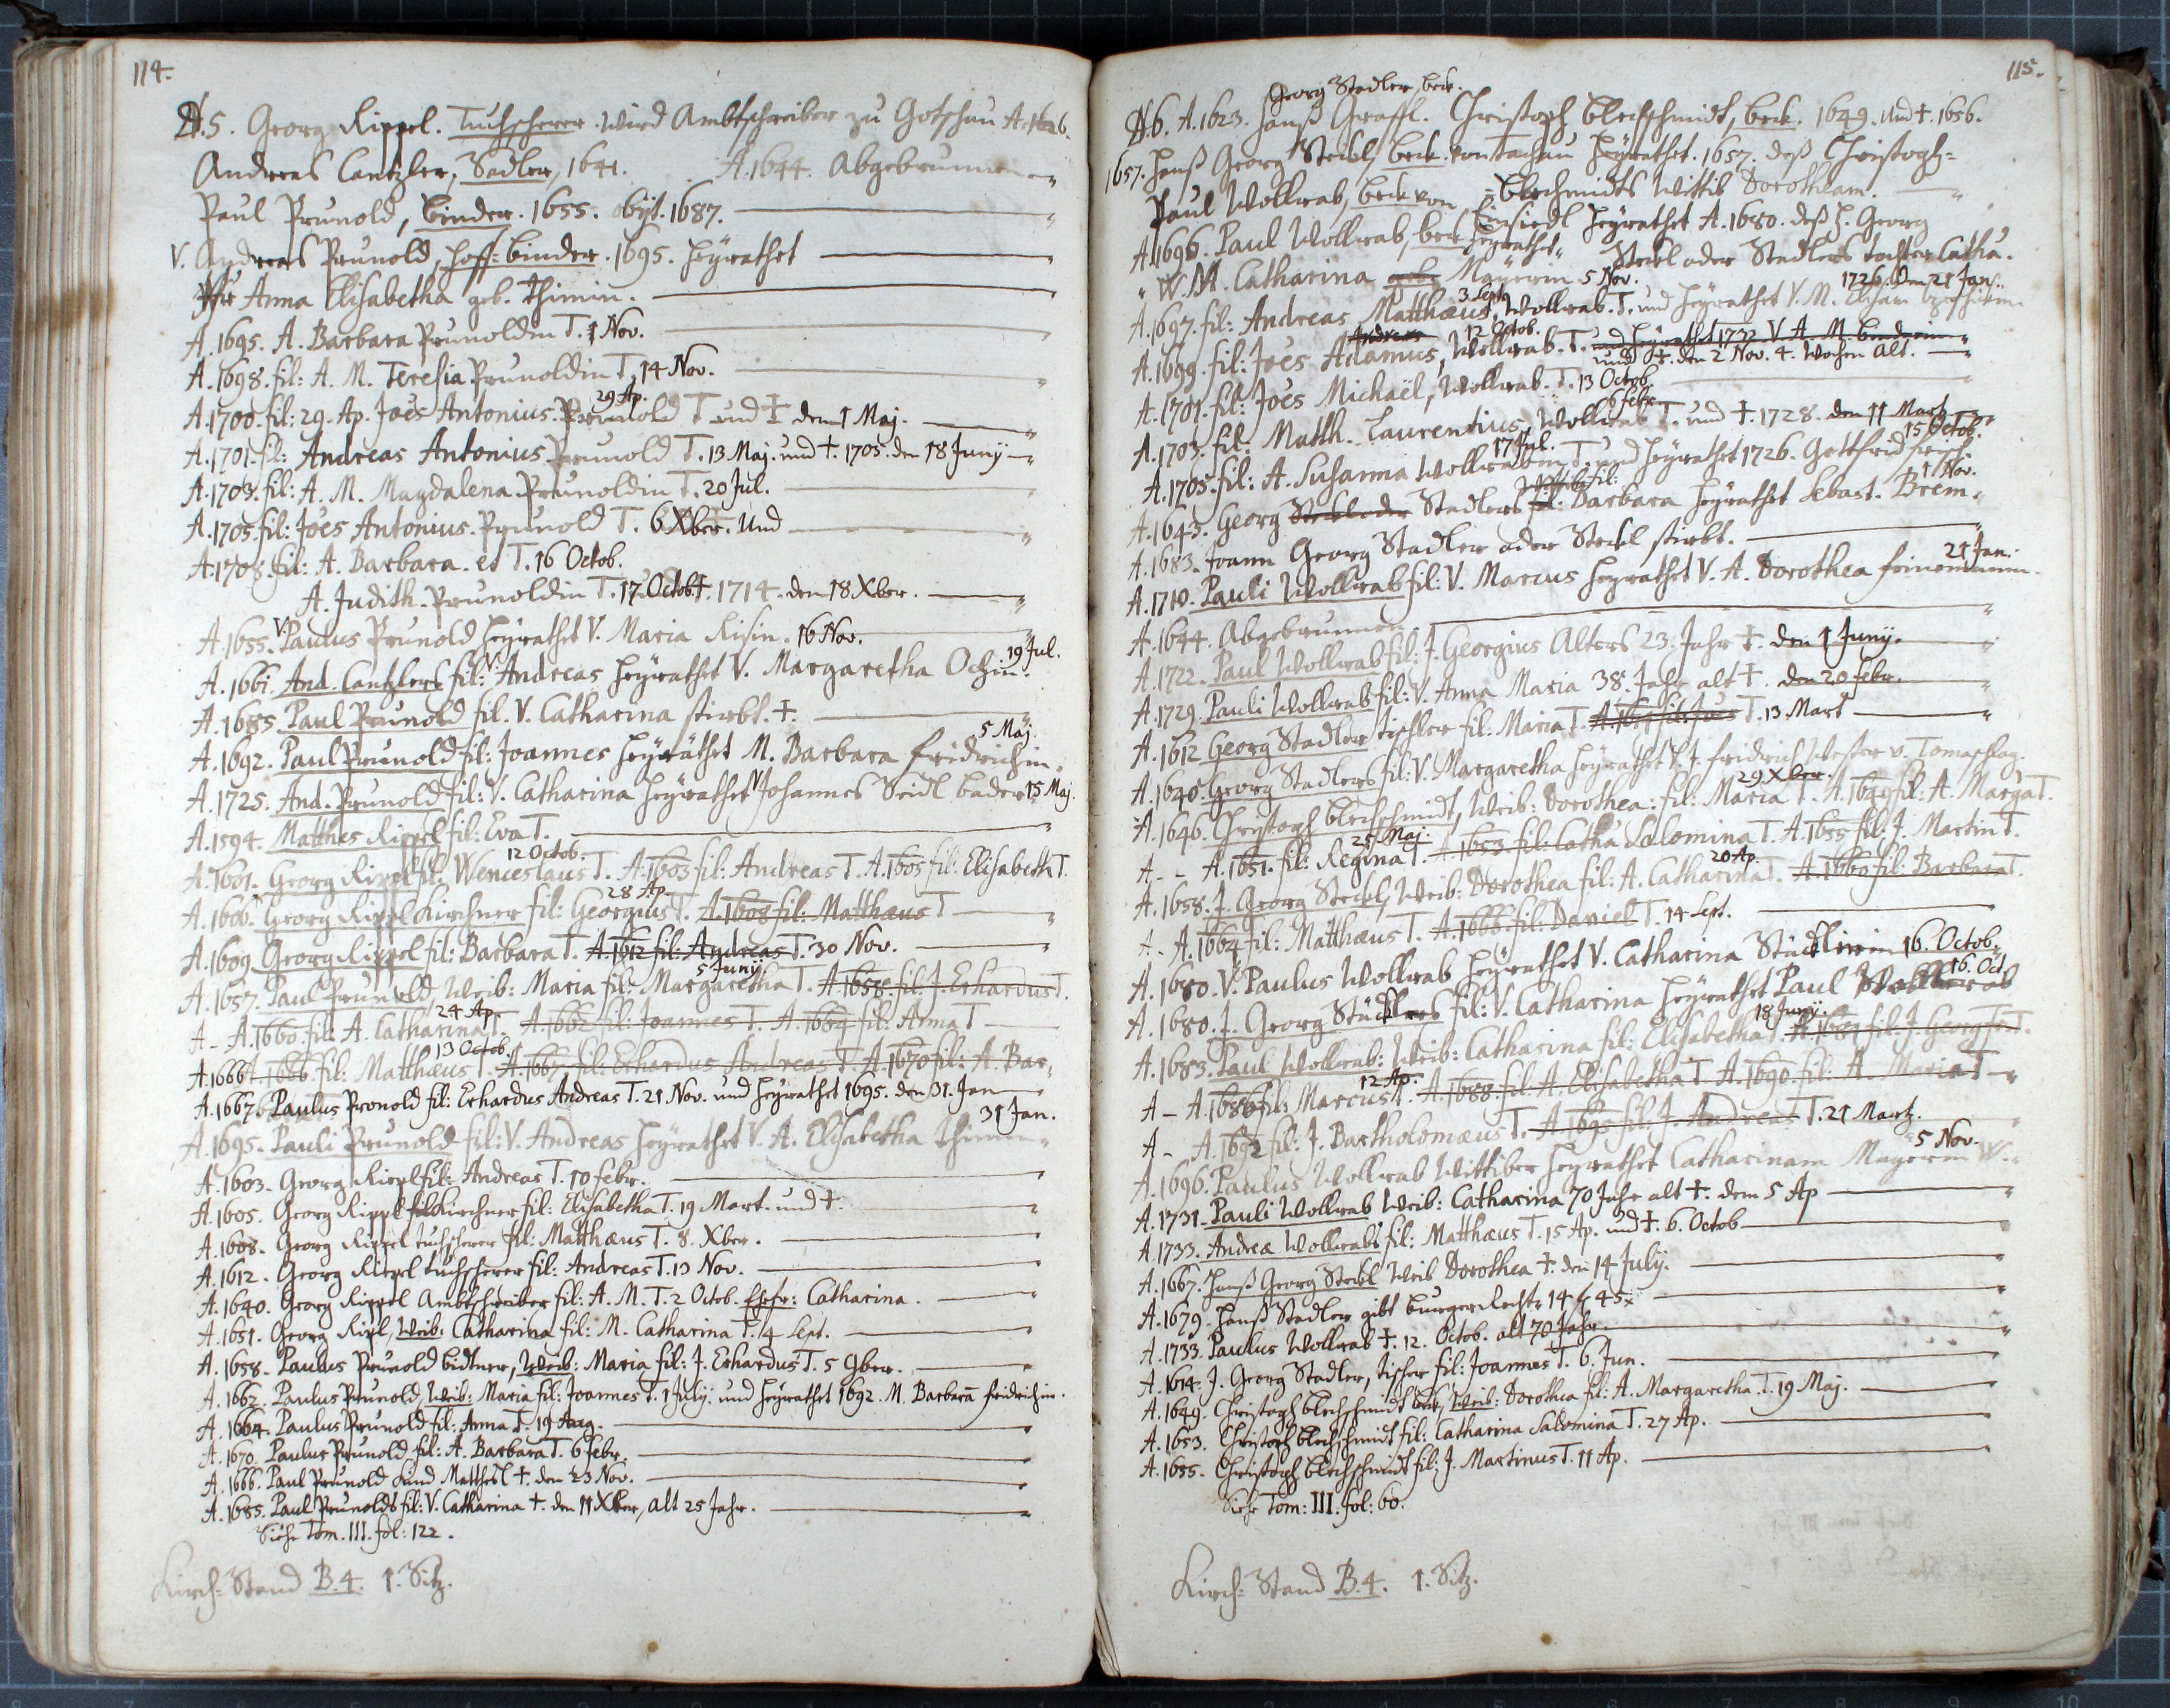 114.
N.5. Georg Rippel. Tuchscherer. wird Ambtschreiber zu Gotschau A. 1626.
Andreas Cantzler, Sadler, 1641. A.1644. Abgebrunnen
Paul Prunold, binder. 1655. obijt. 1687.
V. Andreas Prunold, hoff-binder. 1695. heyrathet
Anna Elisabetha geb. Thimin.
A.1695. A. Barbara Prunoldin T. 1 Nov.
A.1698. fil: A. M. Teresia Prunoldin T. 14 Nov.
29 Ap.
A.1700. fil: 29. Ap. Joës Antonius. Prunold T. und † dem 1 Maj.
A.1701. fil: Andreas Antonius Prunold T. 13 Maj. und †. 1705. den 18 Junÿ
A.1703. fil: A. M. Magdalena Prunoldin T. 20 Jul.
A.1705. fil: Joës Antonius. Prunold T. 6 Xber. Und
A.1708. fil: A. Barbara. et T. 16 Octob.
A. Judith. Prunoldin T. 17. Octob. †. 1714. den 18 Xber.
A.1655. V. Paulus Prunold heyrathet V. Maria Risin. 16 Nov.
19 Jul.
A.1661. And. Cantzlers fil: V. Andreas heyrathet V. Margaretha Ochin.
A.1685. Paul Prunold fil. V. Catharina stirbt. †.
5 Maj.
A.1692. Paul Prunold fil: Joannes heyrathet M. Barbara Fridrichin.
A.1725. And. Prunold fil: V. Catharina heyrathet Johannes Seidl bader 15 Maj.
A.1594. Matthes Rippel fil: Eva T.
12 Octob.
A.1601. Georg Rippel fil: Wenceslaus T. A.1603 fil: Andreas T. A.1605 fil: Elisabeth T.
28 Ap.
A.1606. Georg Rippel Kirchner fil: Georgius T. A.1608 fil: Matthæus T
A.1609 Georg Rippel fil: Barbara T. A.1612 fil: Andreas T. 30 Nov.
5 Junÿ
A.1657. Paul Prunold, Weib: Maria fil: Margaretha T. A.1658. fil: J. Erhardus T.
24 Ap.
A - A.1660. fil: A. Catharina T. A.1662 fil: Joannes T. A.1664 fil: Anna T
13 Octob.
A.1666 A.1666 fil: Matthæus T. A.1667. fil: Erhardus Andreas T. A.1670 fil: A. Bar.
A.1667. Paulus Pronold fil: Erhardus Andreas T. 21 Nov. und heyrathet 1695. den 31. Jan
31 Jan.
A.1695. Pauli Prunold fil: V. Andreas heyrathet V. A. Elisabetha Thimin
A.1603. Georg Rippl fil: Andreas T. 10 Febr.
A.1605. Georg Rippl Kirchner fil: Elisabetha T. 19 Mart. und †.
A.1608. Georg Rippel tuchscherer fil: Matthæus T. 8. Xber.
A.1612. Georg Rippel tuchscherer fil: Andreas T. 13 Nov.
A.1640. Georg Rippel Ambtschreiber fil: A. M. T. 2 Octob. Ehefr: Catharina.
A.1651. Georg Ripl, Weib: Catharina fil: M. Catharina T. 4 Sept.
A.1658. Paulus Prunold bidtner, Weib: Maria fil: J. Erhardus T. 5 9ber.
A.1662. Paulus Prunold, Weib: Maria fil: Joannes T. 1 July. und heyrathet 1692. M. Barbara Fridrichin.
A.1664. Paulus Prunold fil: Anna T. 19 Aug.
A.1670. Paulus Prunold fil: A. Barbara T. 6 Febr.
A.1666. Paul Prunold Kind Matthesl †. den 23 Nov.
A.1685. Paul Prunolds fil: V. Catharina †. den 11 Xber, alt 25 Jahr.
Siehe Tom. III. fol: 122.
Kirch-Stand B.4. 1. Sitz.
115.
Georg Stadler, beck.
N.6. A.1623. Hanß Graffl. Christoph Blechschmidt, beck. 1649. und †. 1656.
1657. Hanß Georg Steckl, beck von Tachau heyrathet. 1657. deß Christoph
Paul Wollrab, beck von Blechmidts Wittib Dorotheam.
Einsiedl heyrathet A.1680. deß H. Georg
A.1696. Paul Wollrab, beck heyrathet Steckl oder Stadlers tochter Catha.
W. M. Catharina geb Mayerin 5 Nov.
3 Sept. 1726. den 21 Jan.
A.1697. fil: Andreas Matthæus, Wollrab. T. und heyrathet V. M.
Andreas 12 Octob.
A.1699. fil: Joës Adamus, Wollrab. T. und heyrathet 1732 V. A. M.
und †. den 2 Nov. 4. Wochen Alt.
A.1701. fil: Joës Michaël, Wollrab. T. 13 Octob.
6 Febr.
A.1703. fil: Matth. Laurentius, Wollrab T. und † 1728. den 11 Mart
17 Jul. 15 Octob.
A.1705. fil: A. Susanna Wollrabin T. und heyrathet 1726. Gottfrid
Wittib fil: 1 Nov.
A.1645. Georg Steckl oder Stadlers fil: Barbara heyrathet Sebast. Brem.
A.1683. Joann Georg Stadler oder Steckl stirbt.
21 Jan.
A.1710. Pauli Wollrab fil: V. Marcus heyrathet V. A. Dorothea
A.1644. Abgebrunnen.
A.1722. Paul Wollrab fil: J. Georgius Alters 23. Jahr †. den 1 Junÿ.
A.1729. Pauli Wollrab fil: V. Anna Maria 38. Jahr alt †. den 20 Febr.
A.1612 Georg Stadler tischler fil: Maria T. A.1614 fil: Joës T. 13 Mart
A.1640. Georg Stadlers fil: V. Margaretha heyrathet V. J. Fridrich Wester v. Tomaschlag.
29 Xber.
A.1646. Christoph Blechschmidt, Weib: Dorothea: fil: Maria T. A.1649 fil: A. Marga T.
25 Maj.
A - - A.1651. fil: Regina T. A.1653 fil: Catha Salomina T. A.1655 fil: J. Martin T.
20 Ap.
A.1658. J. Georg Steckl, Weib: Dorothea fil: A. Catharina T. A.1660 fil: Barbara T.
A - A.1664 fil: Matthæus T. A.1666. fil: Daniel T. 14 Sept.
A.1680. V. Paulus Wollrab heyrathet V. Catharina Stücklin 16. Octob.
16. Oct
A.1680. J. Georg Stücklers fil: V. Catharina heyrathet Paul Wollrab
18 Junÿ.
A.1683. Paul Wollrab: Weib: Catharina fil: Elisabetha T. A.1684 fil: J. Georg
12 Ap.
A - A.1686 fil: Marcus T. A.1688. fil: A. Elisabetha T. A.1690. fil: A. Maria T
A - A.1692 fil: J. Bartholomæus T. A.1695 fil: J. Andreas T. 21 Martz.
5 Nov.
A.1696. Paulus Wollrab Wittiber heyrathet Catharinam Mayerin W.
A.1731. Pauli Wollrab Weib: Catharina 70 Jahr alt †. dem 5 Ap
A.1733. Andreæ Wollrabs fil: Matthæus T. 15 Ap. und †. 6. Octob
A.1667. Hanß Georg Steckl Weib Dorothea †. den 14 July.
A.1679. Hanß Stadler gibt burger Recht 14 f 45 x
A.1733. Paulus Wollrab †. 12. Octob. alt 70 Jahr.
A.1614. J. Georg Stadler, tischer fil: Joannes T. 6. Jun.
A.1649. Christoph Blechschmidt beck, Weib: Dorothea fil: A. Margaretha. T. 19 Maj.
A.1653. Christoph Blechschmidt fil: Catharina Salomina T. 27 Ap.
A.1655. Christoph Blechschmidt fil: J. Martinus T. 11 Ap.
Siehe Tom: III. fol: 60.
Kirch-Stand B.4. 1. Sitz.